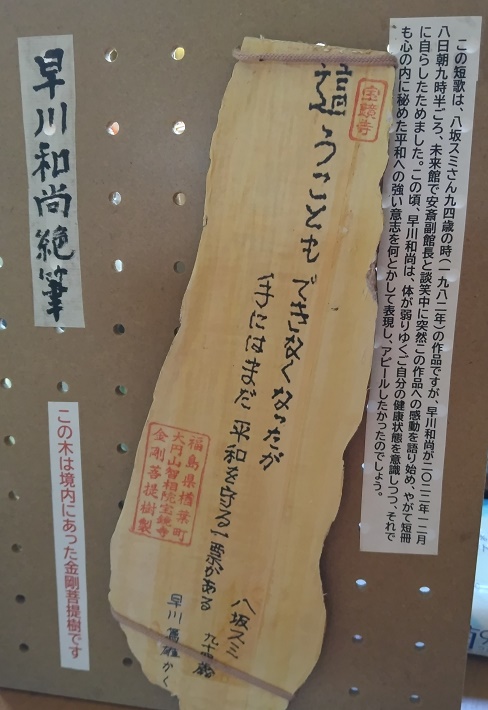 この短歌は、八坂スミさん九四歳の時（一九八二年）の作品ですが、早川和尚が二〇二二年一二月
八日朝九時半ごろ、未来館で安斎副館長と談笑中に突然この作品への感動を語り始め、やがて短冊
に自らしたためました。この頃、早川和尚は、体が弱りゆくご自分の健康状態を意識しつつ、それで
も心の内に秘めた平和への強い意志を何とかして表現し、アピールしたかったのでしょう。
宝鏡寺
這うことも できなくなったが
手にはまだ 平和を守る一票がある
八坂スミ 九十四歳
早川篤雄かく
福島県楢葉町
大円山智相院宝鏡寺
金剛菩提樹製
早川和尚絶筆
この木は境内にあった金剛菩提樹です